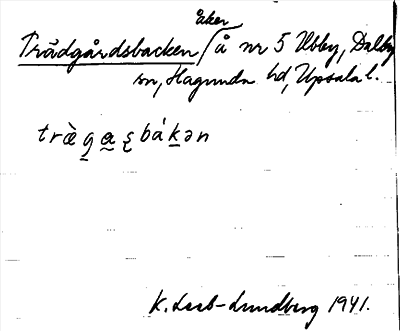 åker
Trädgårdsbacken / å nr 5 Ubby, Dalby
sn, Hagunda hd, Upsala l.
træ̀g̲a̰ʂbák̲ən
K. Leeb-Lundberg 1941.